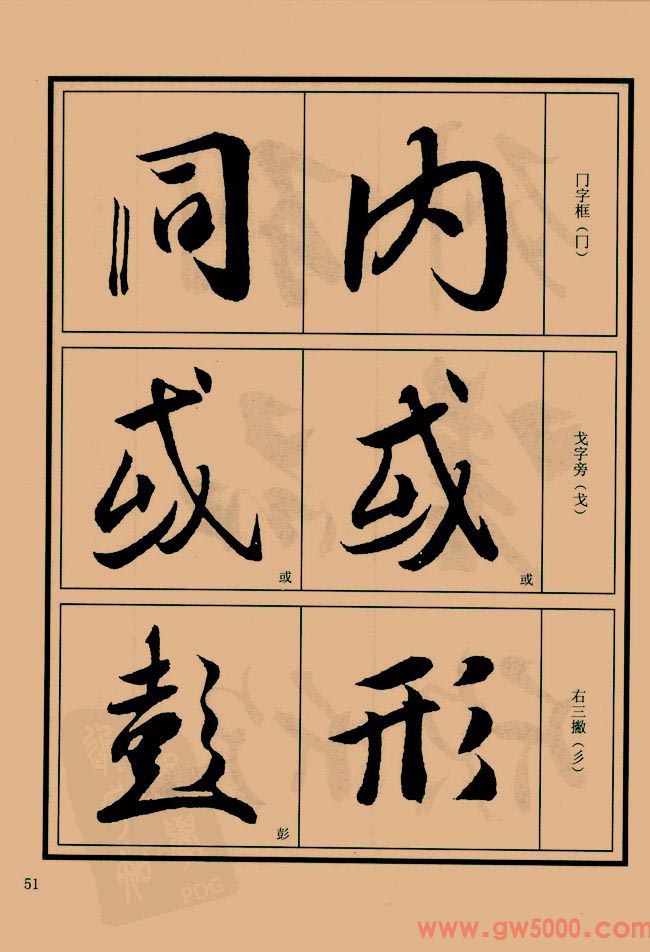 冂字框（冂）
内
同
戈字旁（戈）
或
或
或
或
右三撇（彡）
形
彭
彭
51
PDG
www.gw5000.com